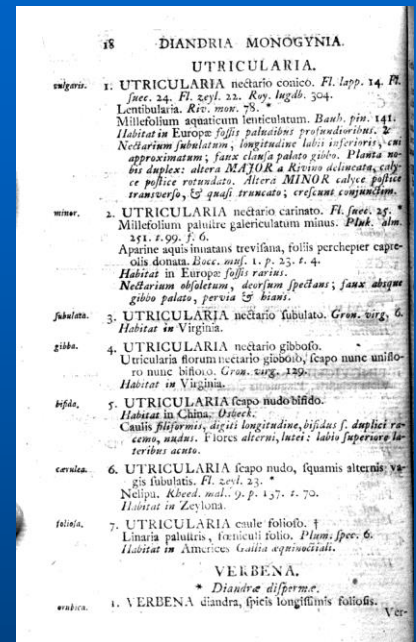 18 DIANDRIA MONOGYNIA.
UTRICULARIA.
vulgaris. 1. UTRICULARIA nectario conico. Fl. lapp. 14. Fl.
suec. 24. Fl. zeyl. 22. Roy. lugdb. 304.
Lentibularia. Riv. mon. 78. *
Millefolium aquaticum lenticulatum. Bauh. pin. 141.
Habitat in Europæ fossis paludibus profundioribus. ♃
Nectarium subulatum, longitudine labii inferioris, cui
approximatum; faux clausa palato gibbo. Planta no-
bis duplex: altera MAJOR a Rivino delineata, caly-
ce postice rotundato. Altera MINOR calyce postice
transverso, & quasi truncato; crescunt conjunctim.
minor. 2. UTRICULARIA nectario carinato. Fl. suec. 25. *
Millefolium palustre galericulatum minus. Pluk. alm.
251. t. 99. f. 6.
Aparine aquis innatans trevisana, foliis perchepier capre-
olis donata. Bocc. mus. 1. p. 23. t. 4.
Habitat in Europæ fossis rarius.
Nectarium obsoletum, deorsum spectans; faux absque
gibbo palato, pervia & hians.
subulata. 3. UTRICULARIA nectario subulato. Gron. virg. 6.
Habitat in Virginia.
gibba. 4. UTRICULARIA nectario gibboso.
Utricularia florum nectario gibboso, scapo nunc uniflo-
ro nunc bifloro. Gron. virg. 129.
Habitat in Virginia.
bifida. 5. UTRICULARIA scapo nudo bifido.
Habitat in China. Osbeck.
Caulis filiformis, digiti longitudine, bifidus s. duplici ra-
cemo, nudus. Flores alterni, lutei: labio superiore la-
teribus acuto.
cærulea. 6. UTRICULARIA scapo nudo, squamis alternis va-
gis subulatis. Fl. zeyl. 23. *
Nelipu. Rheed. mal. 9. p. 137. t. 70.
Habitat in Zeylona.
foliosa. 7. UTRICULARIA caule folioso. †
Linaria palustris, fœniculi folio. Plum. spec. 6.
Habitat in Americes Gallia æquinoctiali.
VERBENA.
* Diandræ dispermæ.
orubica. 1. VERBENA diandra, spicis longissimis foliosis.
Ver-